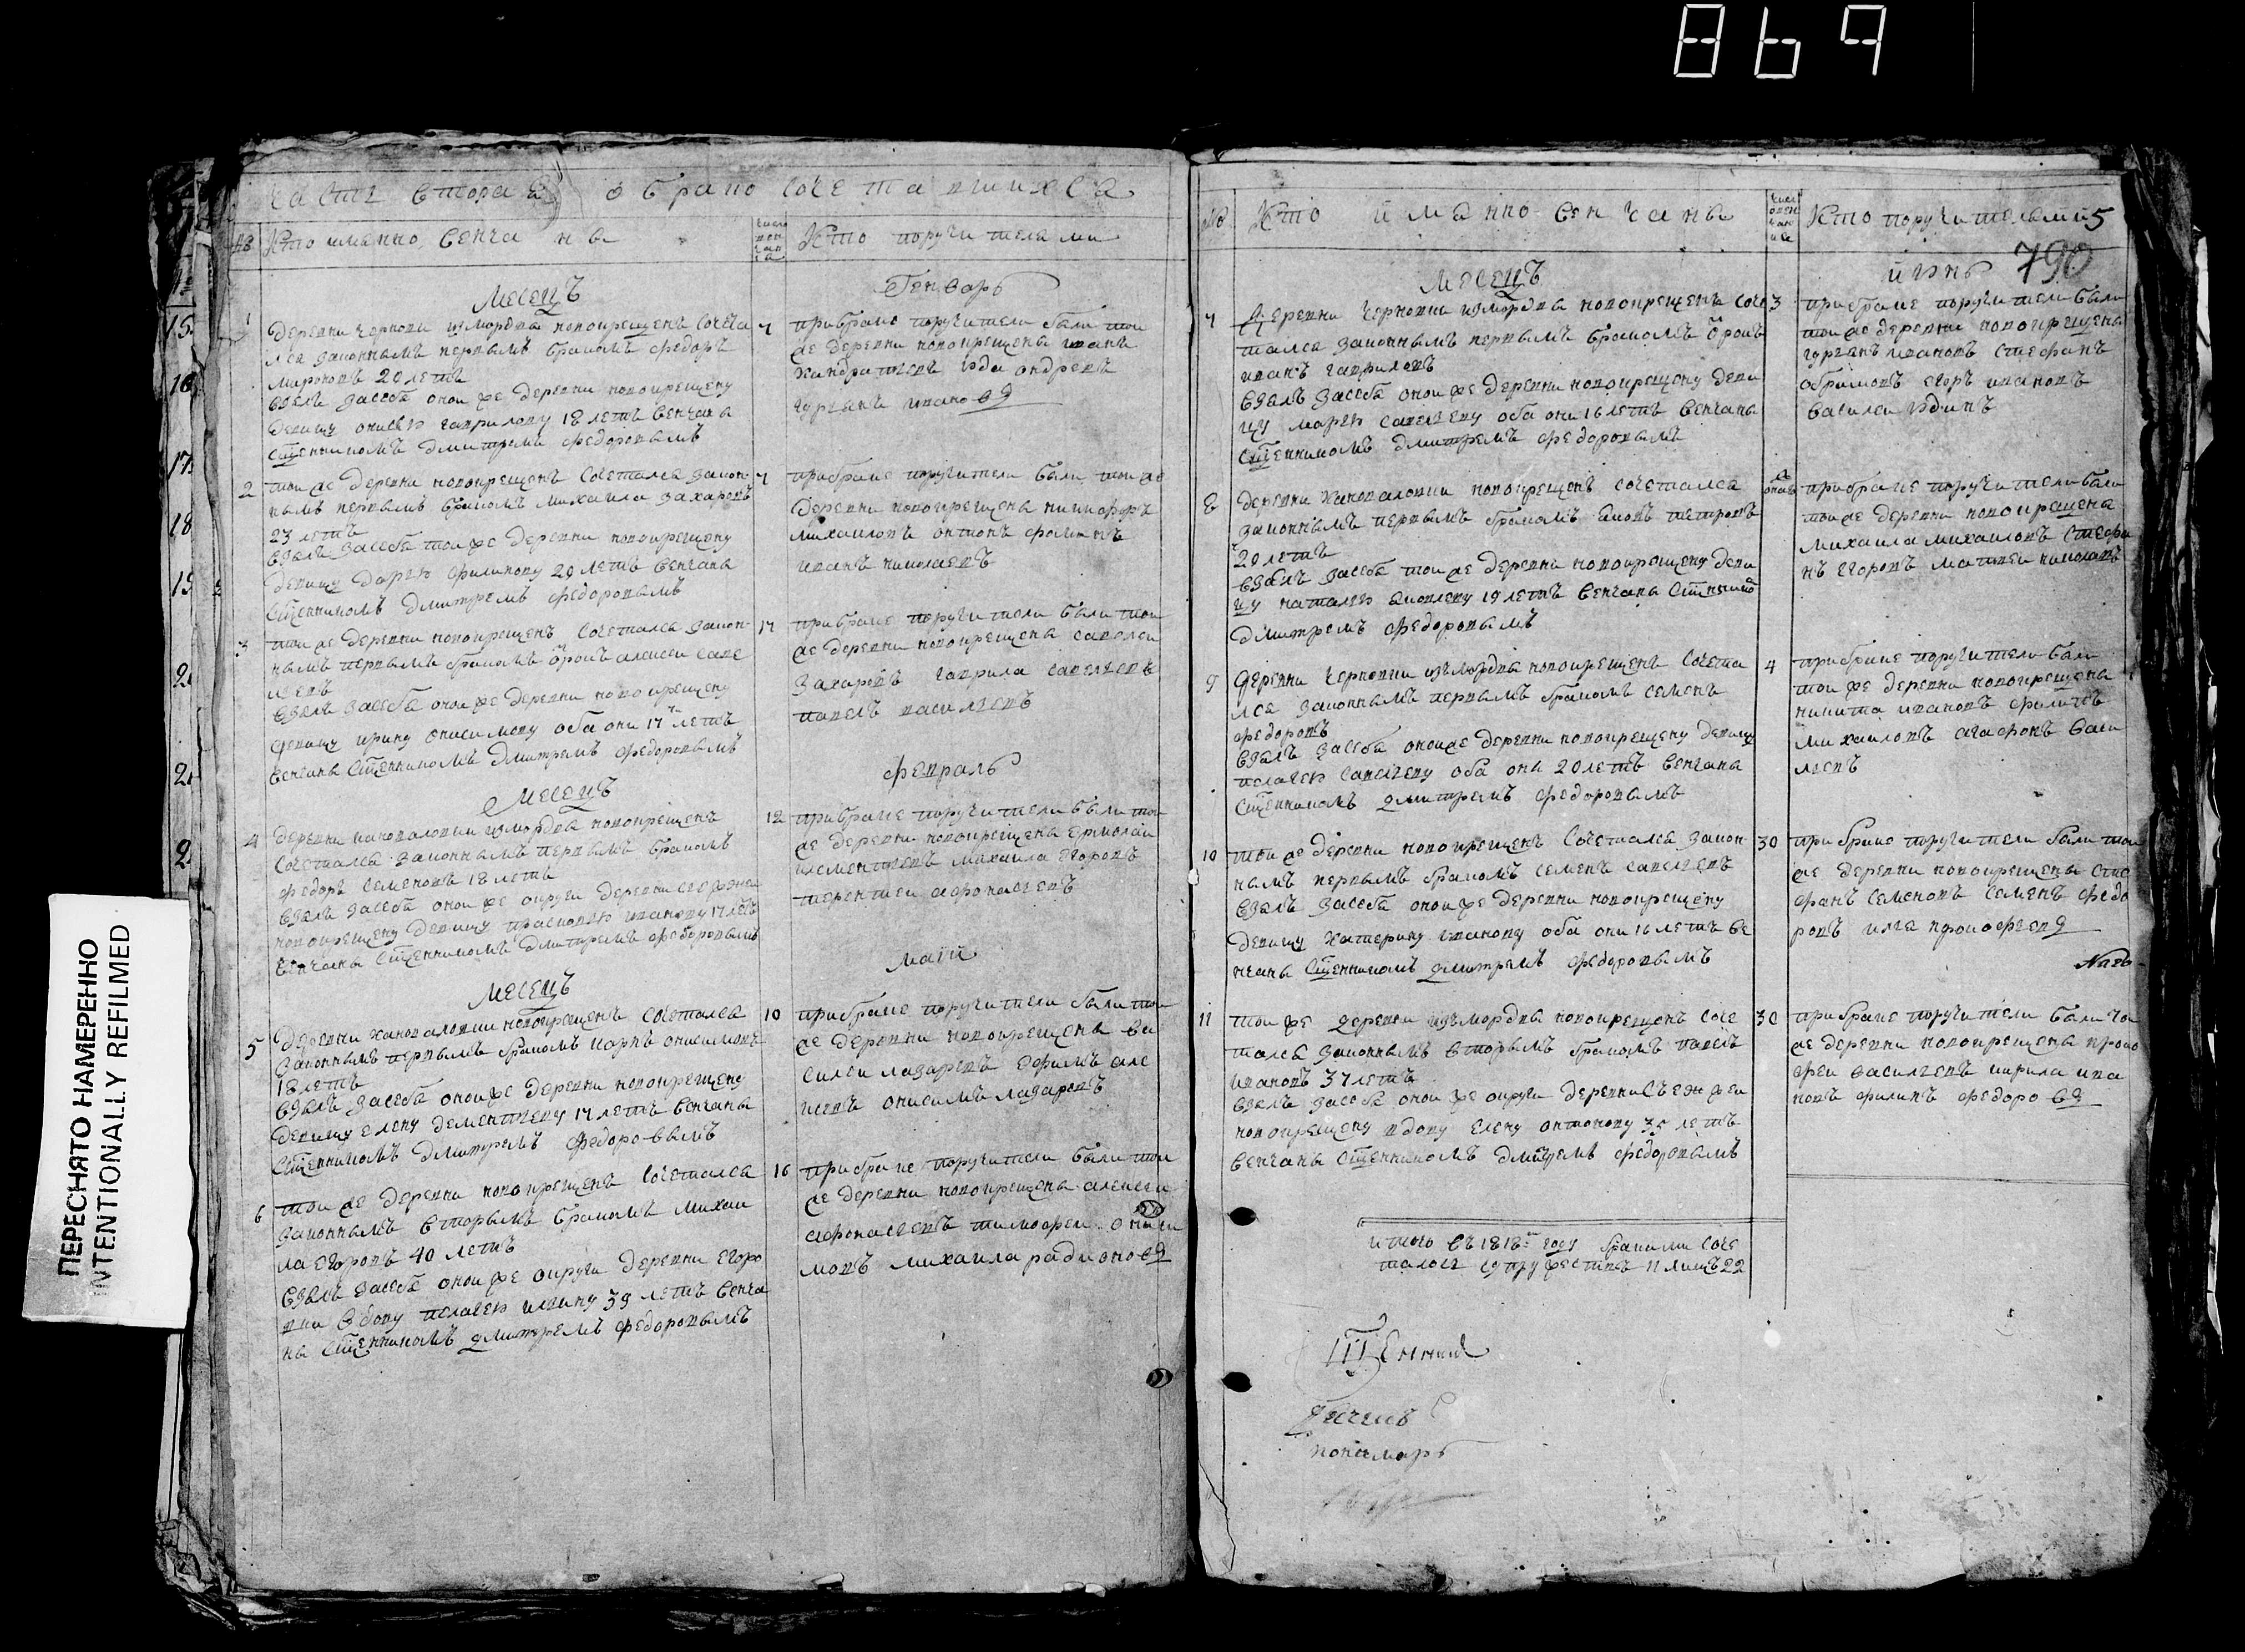 869
часть вторая о бракосочетавшихся
№ Кто имянно венчаны
число венчания
Кто поручителами
Месецъ
Генварь
1
деревни чорновки измордвы новокрещенъ сочета
лся законнымъ первымъ бракомъ федоръ
мироновъ 20 летъ
взялъ засебя оной же деревни новокрещену
девицу онисью гаврилову 18 летъ венчаны
священникомъ дмитремъ федоровымъ
7
прибраке поручители были той
же деревни новокрещены иванъ
гурьянъ иванов
2
той же деревни новокрещенъ сочетался закон
нымъ первымъ бракомъ михаила захаровъ
23 летъ
взялъ засебя той же деревни новокрещену
девицу дарью филипову 20 летъ венчаны
священникомъ дмитремъ федоровымъ
7
прибраке поручители были той же
деревни новокрещены никифоръ
михаиловъ онтонъ фоминъ
иванъ николаевъ
3
той же деревни новокрещенъ сочетался закон
нымъ первымъ бракомъ алексеи саве
льевъ
взялъ засебя оной же деревни новокрещену
девицу ирину онисимову оба они 17 летъ
венчаны священникомъ дмитремъ федоровымъ
17
прибраке поручители были той
же деревни новокрещены савелеи
захаровъ гаврила савельевъ
павелъ васильевъ
Месецъ
февраль
4
деревни кановаловки измордвы новокрещенъ
сочетался законнымъ первымъ бракомъ
федоръ семеновъ 18 летъ
взялъ засебя оной же округи деревни съежжеи
новокрещену девицу прасковью иванову 17 летъ
венчаны священникомъ дмитремъ федоровымъ
12
прибраке поручители были той
же деревни новокрещены ермолаи
клементьевъ михаила егоровъ
терентеи афонасьевъ
Месецъ
маии
5
деревни кановаловки новокрещенъ сочетался
законнымъ первымъ бракомъ карпъ онисимовъ
18 летъ
взялъ засебя оной же деревни новокрещену
девицу елену дементьеву 17 летъ венчаны
священникомъ дмитремъ федоровымъ
10
прибраке поручители были той
же деревни новокрещены ва
силеи лазаревъ ефимъ але
онисимъ лазаревъ
6
той же деревни новокрещенъ сочетался
законнымъ вторымъ бракомъ михаи
ла егоровъ 40 летъ
взялъ засебя оной же округи деревни егоро
вки вдову пелагею ильину 39 летъ венча
ны священникомъ дмитремъ федоровымъ
16
прибраке поручители были той
же деревни новокрещены алексеи
афонасьевъ тимофеи ониси
мовъ михаила радионов
№ Кто имянно венчаны
Кто поручителами 5
790
Месецъ
июнь
7
деревни чорновки измордвы новокрещенъ соче
тался законнымъ первымъ бракомъ
иванъ гавриловъ
взялъ засебя оной же деревни новокрещену деви
цу марью савельеву оба они 16 летъ венчаны
священникомъ дмитремъ федоровымъ
3
прибраке поручители были
той же деревни новокрещены
гурьянъ ивановъ стефанъ
абрамовъ егоръ ивановъ
василеи юдинъ
8
деревни кановаловки новокрещенъ сочетался
законнымъ первымъ бракомъ яковъ петровъ
20 летъ
взялъ засебя той же деревни новокрещену деви
цу наталью яковлеву 19 летъ венчаны священником
дмитремъ федоровымъ
прибраке поручители были
той же деревни новокрещены
михаила михаиловъ стефа
нъ егоровъ матвеи николаевъ
9
деревни чорновки измордвы новокрещенъ сочета
лся законнымъ первымъ бракомъ семенъ
федоровъ
взялъ засебя оной же деревни новокрещену девицу
пелагею савельеву оба они 20 летъ венчаны
священникомъ дмитремъ федоровымъ
4
прибраке поручители были
той же деревни новокрещены
никита ивановъ филипъ
михаиловъ агафонъ васи
льевъ
10
той же деревни новокрещенъ сочетался закон
нымъ первымъ бракомъ семенъ савельевъ
взялъ засебя оной же деревни новокрещену
девицу катерину иванову оба они 16 летъ ве
нчаны священникомъ дмитремъ федоровымъ
30
прибраке поручители были той
же деревни новокрещены сте
фанъ семеновъ семенъ федо
ровъ илья прокофьев
11
той же деревни измордвы новокрещенъ соче
тался законнымъ вторымъ бракомъ павелъ
ивановъ 37 летъ
взялъ засебя оной же округи деревни съежжеи
новокрещену вдову елену онтонову 35 летъ
венчаны священникомъ дмитремъ федоровымъ
30
прибраке поручители были той
же деревни новокрещены проко
феи васильевъ кирила ива
новъ филипъ федоров
итого въ 1818 году браками соче
талось супружествъ 11 лицъ 22
Священник
Дьячекъ
пономарь
15
16
17
18
19
2
2
2
ПЕРЕСНЯТО НАМЕРЕННО
INTENTIONALLY REFILMED